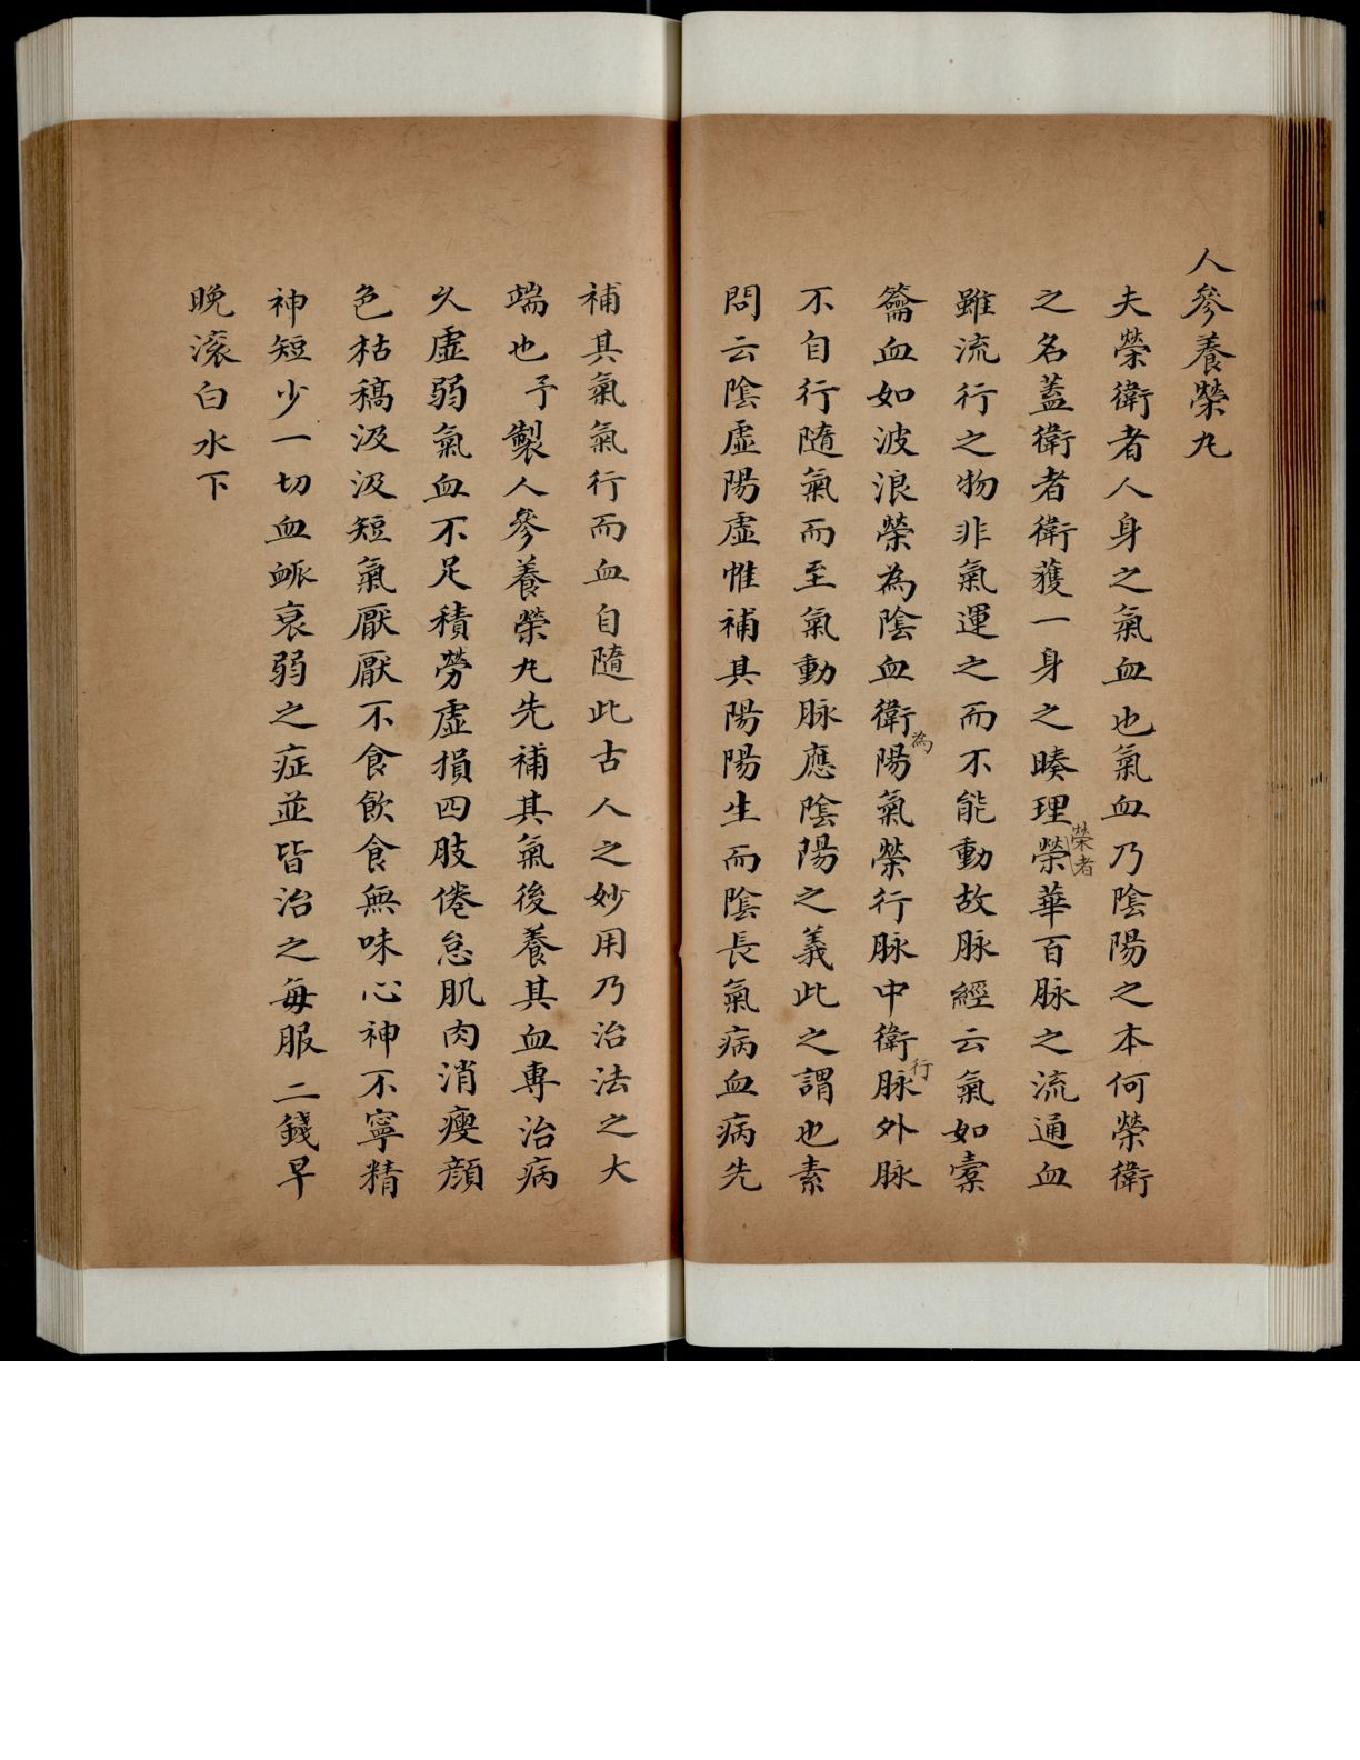 人參養榮丸
夫榮衛者人身之氣血也氣血乃陰陽之本何榮衛
之名蓋衛者衛蒦一身之腠理榮者榮華百脉之流通血
雖流行之物非氣運之而不能動故脉經云氣如橐
籥血如波浪榮為陰血衛為陽氣榮行脉中衛行脉外脉
不自行隨氣而至氣動脉應陰陽之義此之謂也素
問云陰虛陽虛惟補其陽陽生而陰長氣病血病先
補其氣氣行而血自隨此古人之妙用乃治法之大
端也予製人參養榮丸先補其氣後養其血專治病
久虛弱氣血不足積勞虛損四肢倦怠肌肉消瘦顔
色枯稿汲汲短氣厭厭不食飲食無味心神不寧精
神短少一切血衇衰弱之症並皆治之每服二錢早
晚滚白水下